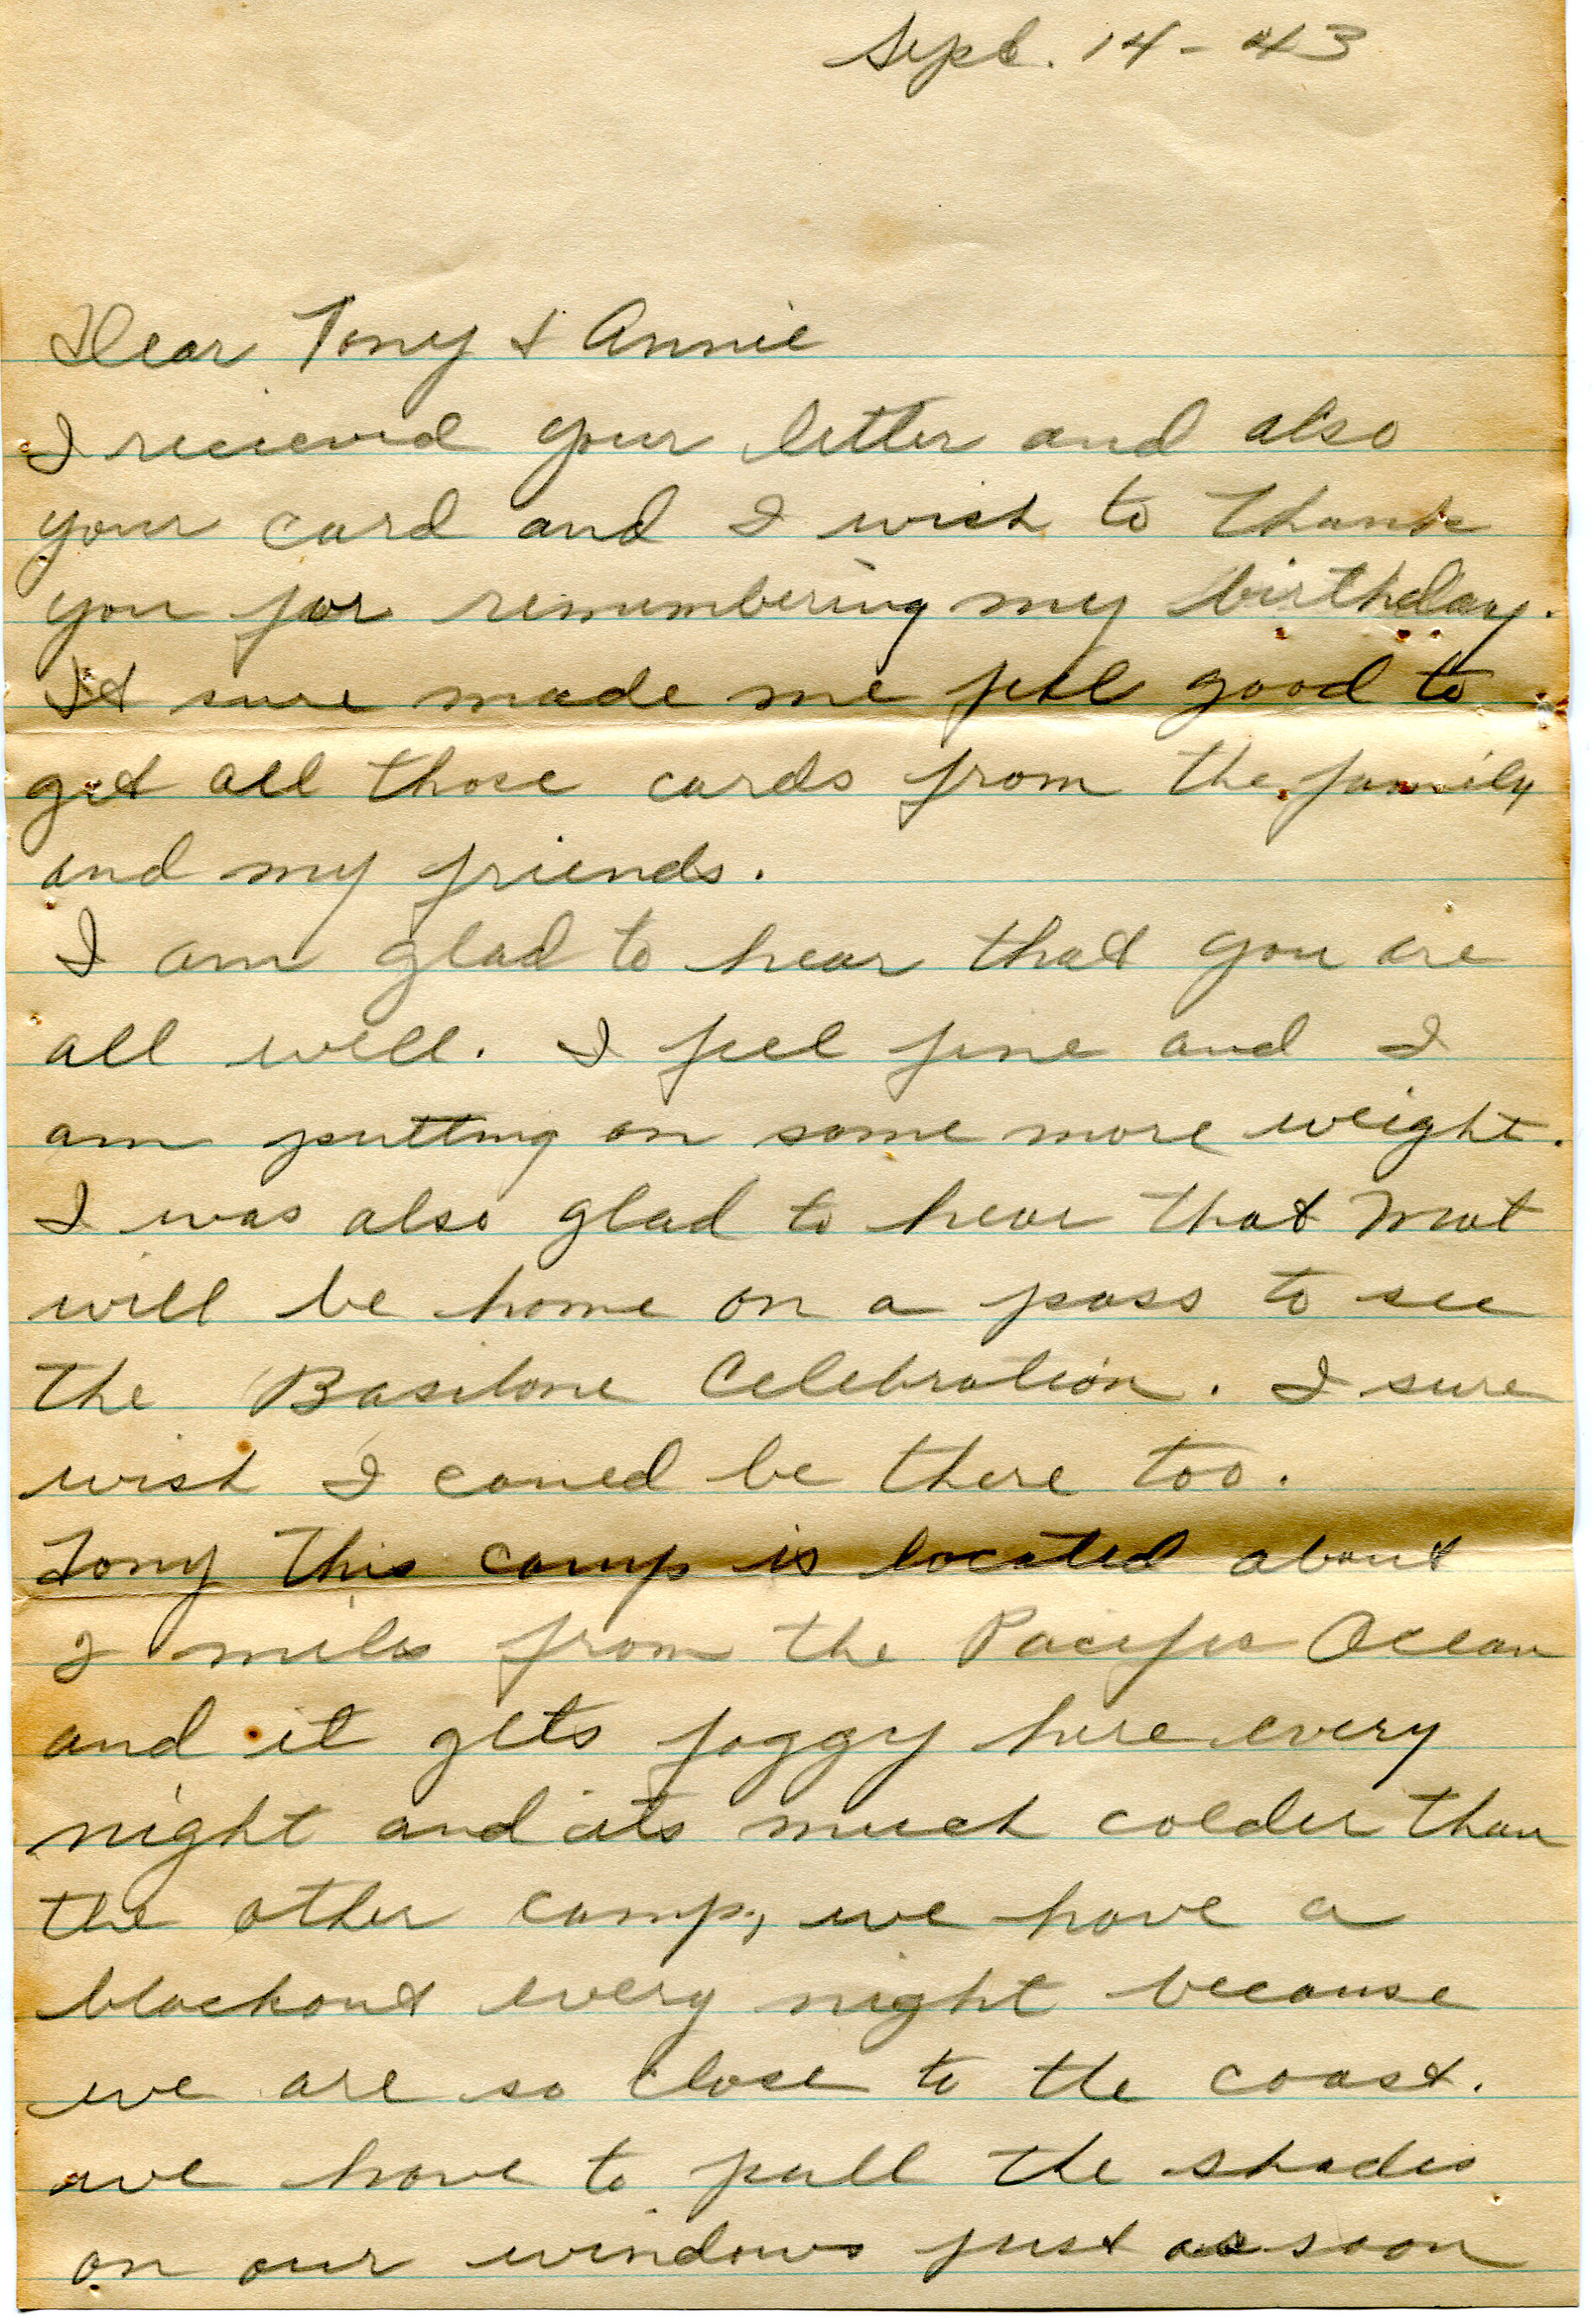 Sept. 14 - 43
Dear Tony & Annie
I recieved your letter and also
your card and I wish to thank
you for remembering my birthday.
It sure made me feel good to
get all those cards from the family
and my friends.
I am glad to hear that you are
all well. I feel fine and I
am putting on some more weight.
I was also glad to hear that Mat
will be home on a pass to see
the Basilone Celebration. I sure
wish I could be there too.
Tony this camp is located about
2 miles from the Pacific Ocean
and it gets foggy here every
night and its much colder than
the other camp, we have a
blackout every night because
we are so close to the coast.
we have to pull the shades
on our windows just as soon